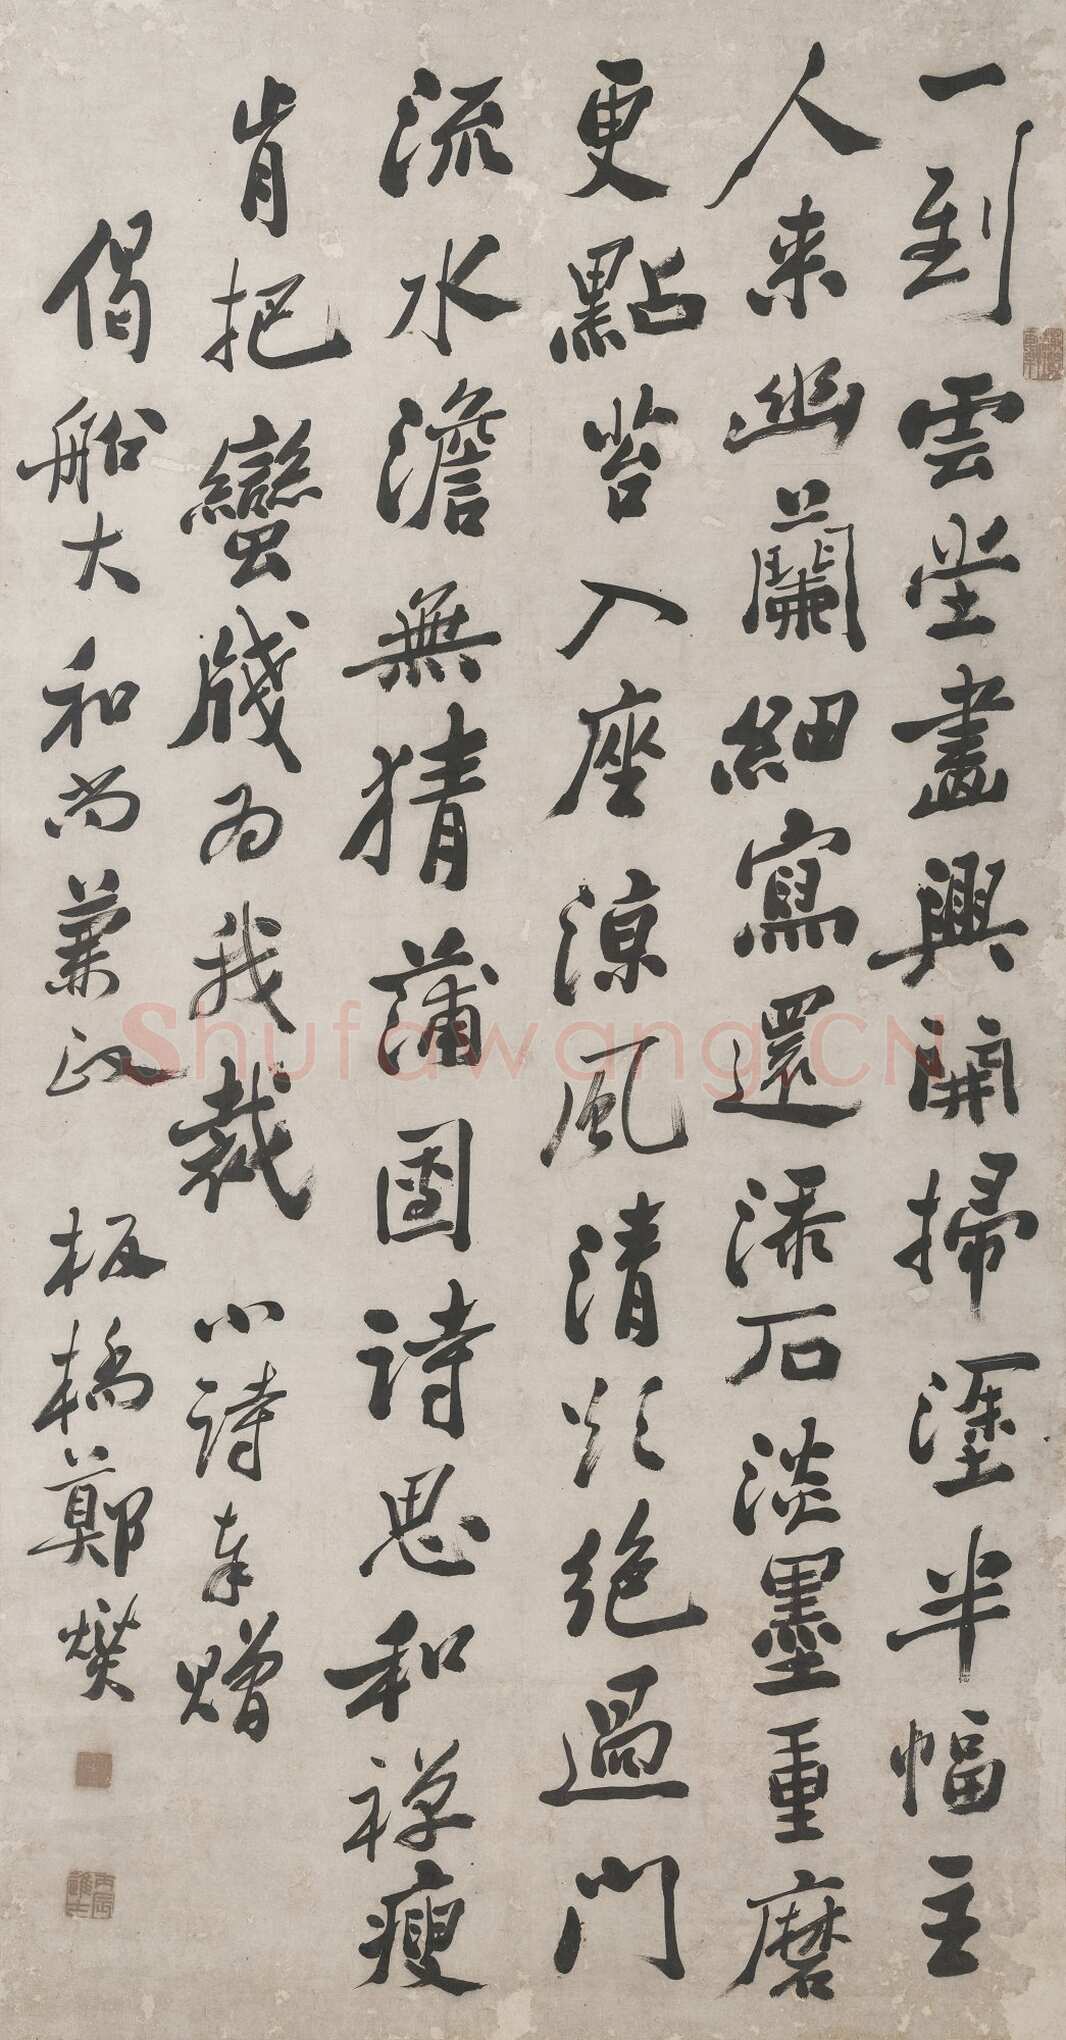 一到雲堂畫興開掃塗半幅主
人来幽蘭細寫還添石淡墨重磨
更點苔入座涼風清欲絕過門
流水澹無猜蒲團詩思和禪瘦
肯把蠻牋為我裁 小詩奉贈
偈船大和尚兼政 板橋鄭燮
丙辰進士
Shufawang.CN